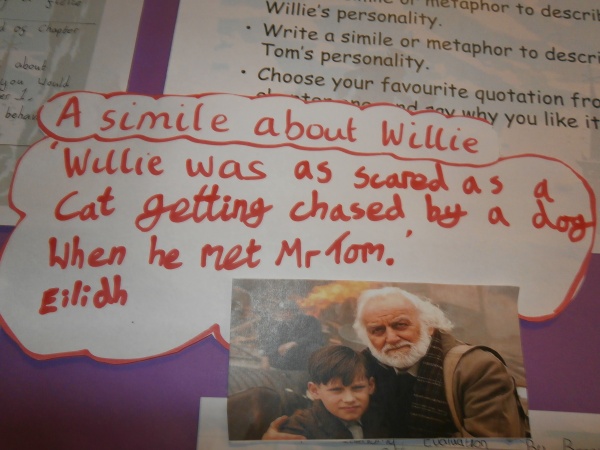 metaphor to describ
Willie's personality.
• Write a simile or metaphor to descri
Tom's personality.
• Choose your favourite quotation fro
why you like it
of Chapter
about
you would
A simile about Willie
'Willie was as scared as a
Cat getting chased by a dog
When he met Mr Tom.'
Eilidh
Evaluation